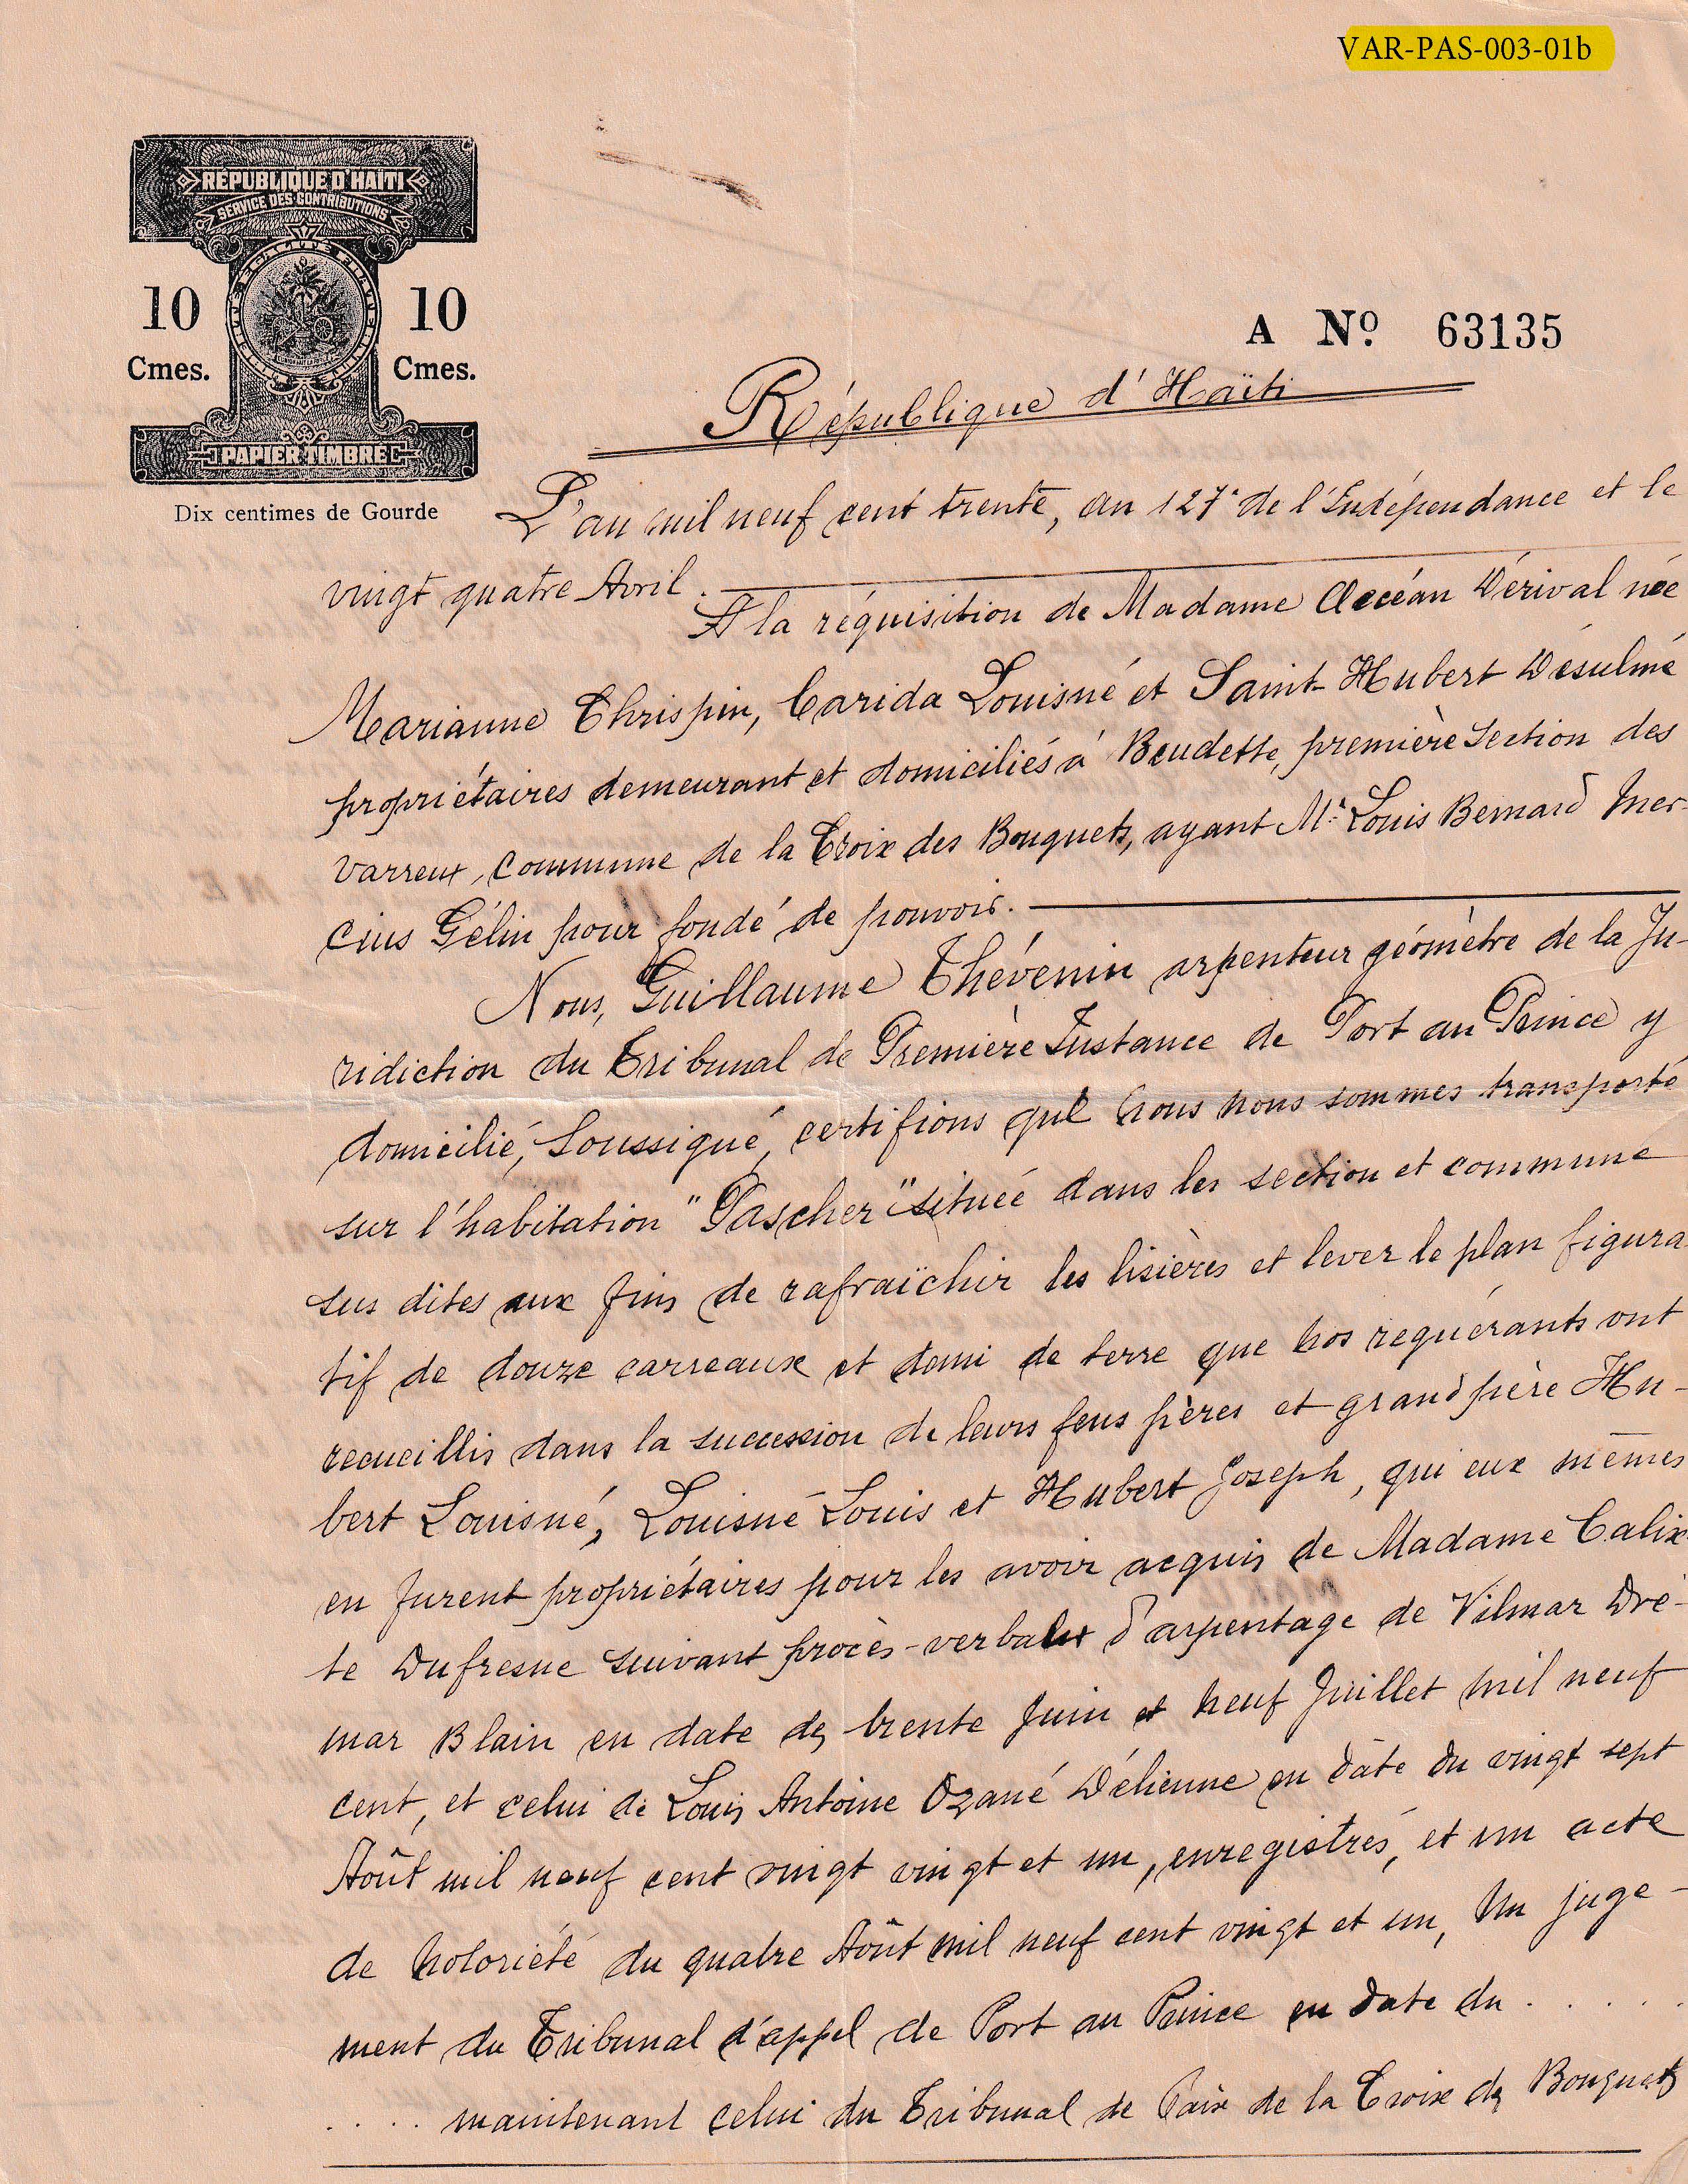 VAR-PAS-003-01b
RÉPUBLIQUE D'HAÏTI
SERVICE DES CONTRIBUTIONS
10 10
Cmes. Cmes.
PAPIER TIMBRÉ
Dix centimes de Gourde
A Nº 63135
République d'Haïti
L'an mil neuf cent trente, an 127e de l'Indépendance et le
vingt quatre Avril.
A la réquisition de Madame Occéan Dérival née
Marianne Chrispin, Carida Louisné et Saint-Hubert Désulmé
propriétaires demeurant et domiciliés à Beudette, première Section des
Varreux, commune de la Croix des Bouquets, ayant Me Louis Bernard Mer-
cius Gélin pour fondé de pouvoir.
Nous, Guillaume Thévenin arpenteur géomètre de la Ju-
ridiction du Tribunal de Première Instance de Port au Prince y
domicilié, Soussigné, certifions que nous nous sommes transporté
sur l'habitation "Pascher" située dans les section et commune
sus dites aux fins de rafraîchir les lisières et lever le plan figura
tif de douze carreaux et demi de terre que nos requérants ont
recueillis dans la succession de leurs feus pères et grand père Hu-
bert Louisné, Louisné Louis et Hubert Joseph, qui eux mêmes
en furent propriétaires pour les avoir acquis de Madame Calix-
te Dufresne suivant procès-verbaux d'arpentage de Vilmar Dré-
mar Blain en date des trente Juin et neuf Juillet mil neuf
cent, et celui de Louis Antoine Ozané Délienne en date du vingt sept
Août mil neuf cent vingt vingt et un, enregistrés, et un acte
de notoriété du quatre Août mil neuf cent vingt et un, Un juge-
ment du Tribunal d'appel de Port au Prince en date du . . . . .
. . . . maintenant celui du Tribunal de Paix de la Croix des Bouquets